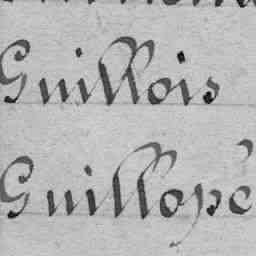 Guillois
Guillopé